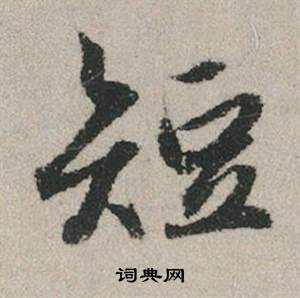 短
词典网